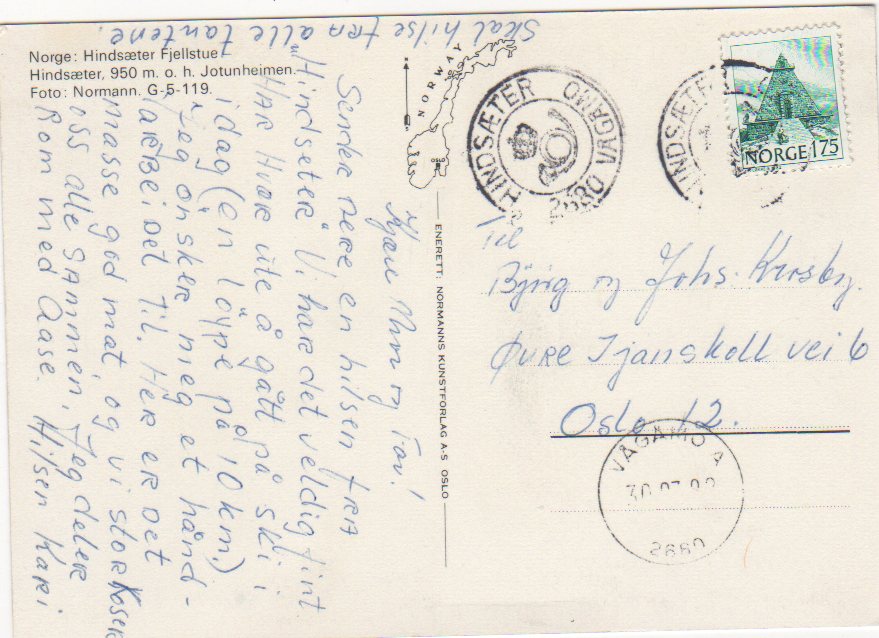 Skal hilse fra alle tantene.
Norge: Hindsæter Fjellstue
Hindsæter, 950 m. o. h. Jotunheimen.
Foto: Normann. G-5-119.
NORWAY
OSLO
HINDSÆTER
2680 VÅGÅMO
HINDSÆTER
NORGE 175
Kjære Mor og Far!
Sender dere en hilsen fra
"Hindseter". Vi har det veldig fint
Har Hvor ute å gått på ski i
idag (en löype på 10 km.)
Jeg ønsker meg et hånd-
arbeidet til. Her er det
masse god mat, og vi storkoser
oss alle sammen. Jeg deler
Rom med Aase. Hilsen Kari
ENERETT: NORMANNS KUNSTFORLAG A-S OSLO
Til
Bjørg og Johs.
Øvre Tjanskoll vei 6
Oslo 12.
VÅGÅMO A
2680